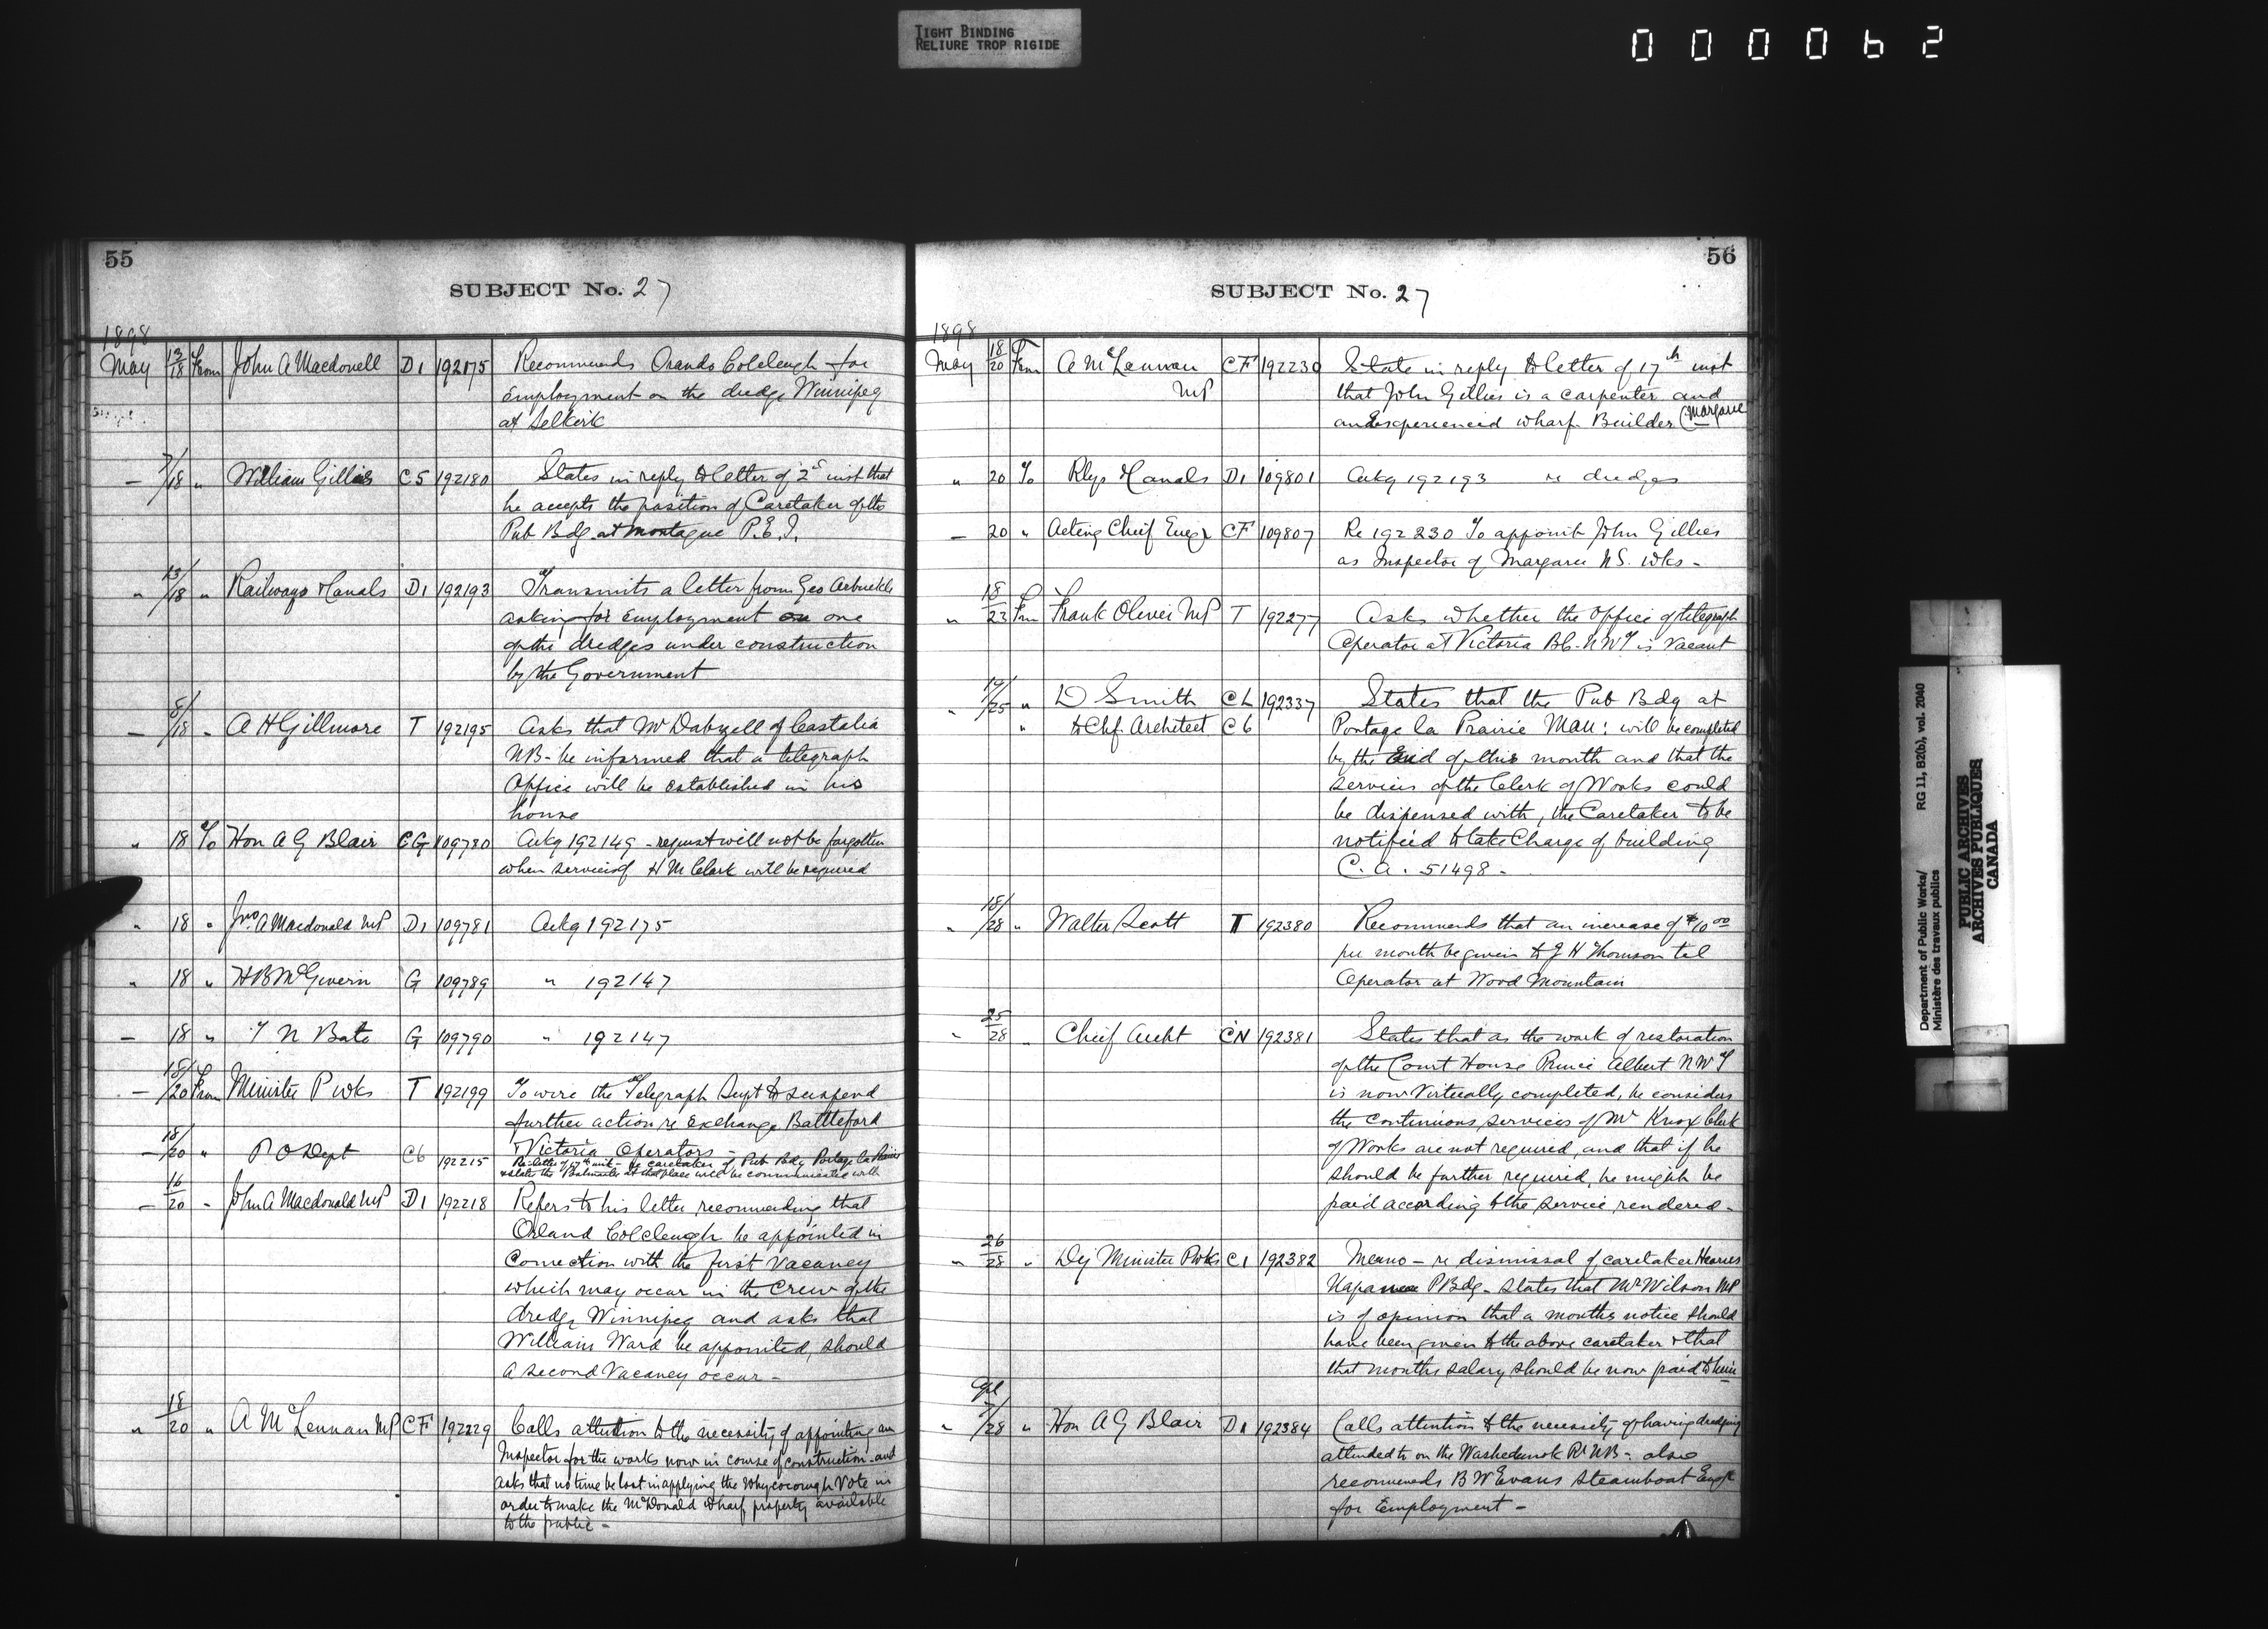 TIGHT BINDING
RELIURE TROP RIGIDE
000062
55
SUBJECT No. 27
1898
May 13/18 From John A Macdonell D1 192175 Recommends Orando Colcleugh for
employment on the dredge Winnipeg
at Selkirk
— 7/18 " William Gillis C5 192180 States in reply to letter of 2d inst that
he accepts the position of Caretaker of the
Pub Bdg at Montague P.E.I.
" 13/18 " Railways & Canals D1 192193 Transmits a letter from Geo Arbuckle
asking for employment on one
of the dredges under construction
by the Government
— 8/18 " A H Gillmore T 192195 Asks that Mr Dalzell of Castalia
NB - be informed that a telegraph
Office will be established in his
house
" 18 To Hon A G Blair CG 109780 Ackg 192149 - request will not be forgotten
when services of H M Clark will be required
" 18 " Jno. A Macdonald MP D1 109781 Ackg 192175
" 18 " H B McGivern G 109789 " 192147
— 18 " T N Bate G 109790 " 192147
— 18/20 From Minister P Wks T 192199 To wire the Telegraph Supt to suspend
further action re exchange Battleford
& Victoria Operators -
— 18/20 " P O Dept C6 192215 Re letter of 17th inst - re caretaker of Pub Bdg Portage la Prairie
& state the Postmaster at that place will be communicated with
— 16/20 " John A Macdonald MP D1 192218 Refers to his letter recommending that
Orland Colcleugh be appointed in
Connection with the first Vacancy
which may occur in the Crew of the
dredge Winnipeg and asks that
William Ward be appointed, should
a second Vacancy occur -
" 18/20 " A McLennan MP CF 192229 Calls attention to the necessity of appointing an
Inspector for the works now in course of construction - and
asks that no time be lost in applying the Whycocomagh Vote in
order to make the McDonald Wharf property available
to the public -
56
SUBJECT No. 27
1898
May 18/20 From A McLennan CF 192230 State in reply to letter of 17th inst
MP that John Gillies is a carpenter and
and experienced wharf Builder (Margaree
" 20 To Rlys & Canals D1 109801 Ackg 192193 re dredges
— 20 " Acting Chief Engr CF 109807 Re 192230 To appoint John Gillies
as Inspector of Margaree N.S. Wks -
" 18/23 From Frank Oliver MP T 192277 Asks whether the Office of telegraph
Operator at Victoria NWT is Vacant
" 17/25 " D Smith CL 192337 States that the Pub Bdg at
" to Chf Architect C6 Portage la Prairie Man: will be completed
by the End of this month and that the
services of the Clerk of Works could
be dispensed with, the Caretaker to be
notified to take Charge of building
C.A. 51498 -
" 18/28 " Walter Scott T 192380 Recommends that an increase of $10 00
per month be given to J H Thomson tel
Operator at Wood Mountain
" 25/28 " Chief Archt CN 192381 States that as the work of restoration
of the Court House Prince Albert NWT
is now Virtually completed, he considers
the continuous services of Mr Knox Clerk
of Works are not required, and that if he
should be further required, he might be
paid according to the service rendered -
" 26/28 " Dy Minister P Wks C1 192382 Memo - re dismissal of caretaker
Napanee P Bdg - States that Mr Wilson MP
is of opinion that a months notice should
have been given to the above caretaker & that
that months salary should be now paid to him
" /28 " Hon A G Blair D1 192384 Calls attention to the necessity of having dredging
attended to on the Washedemoak Rr NB - also
recommends B W Evans steamboat Engr
for Employment -
Department of Public Works/
Ministère des travaux publics
RG 11, B2(b), vol. 2040
PUBLIC ARCHIVES
ARCHIVES PUBLIQUES
CANADA